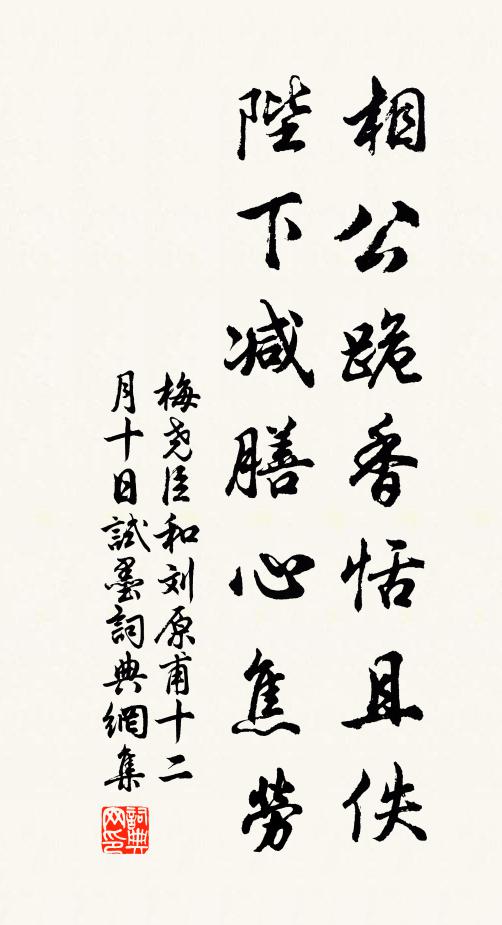 相公跪香恬且佚
陛下减膳心焦劳
梅尧臣和刘原甫十二
月十日試墨詞典網集
詞典网印